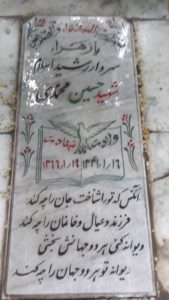 یا زهرا
سردار رشید اسلام
شهید حسین محمدی
ولادت شهادت
۱۳۴۱/۱/۱۶ ۱۳۶۶/۱/۱۹
آنکس که تو را شناخت جان را چه کند
فرزند و عیال و خانمان را چه کند
دیوانه کنی هر دو جهانش بخشی
دیوانه تو هر دو جهان را چه کند